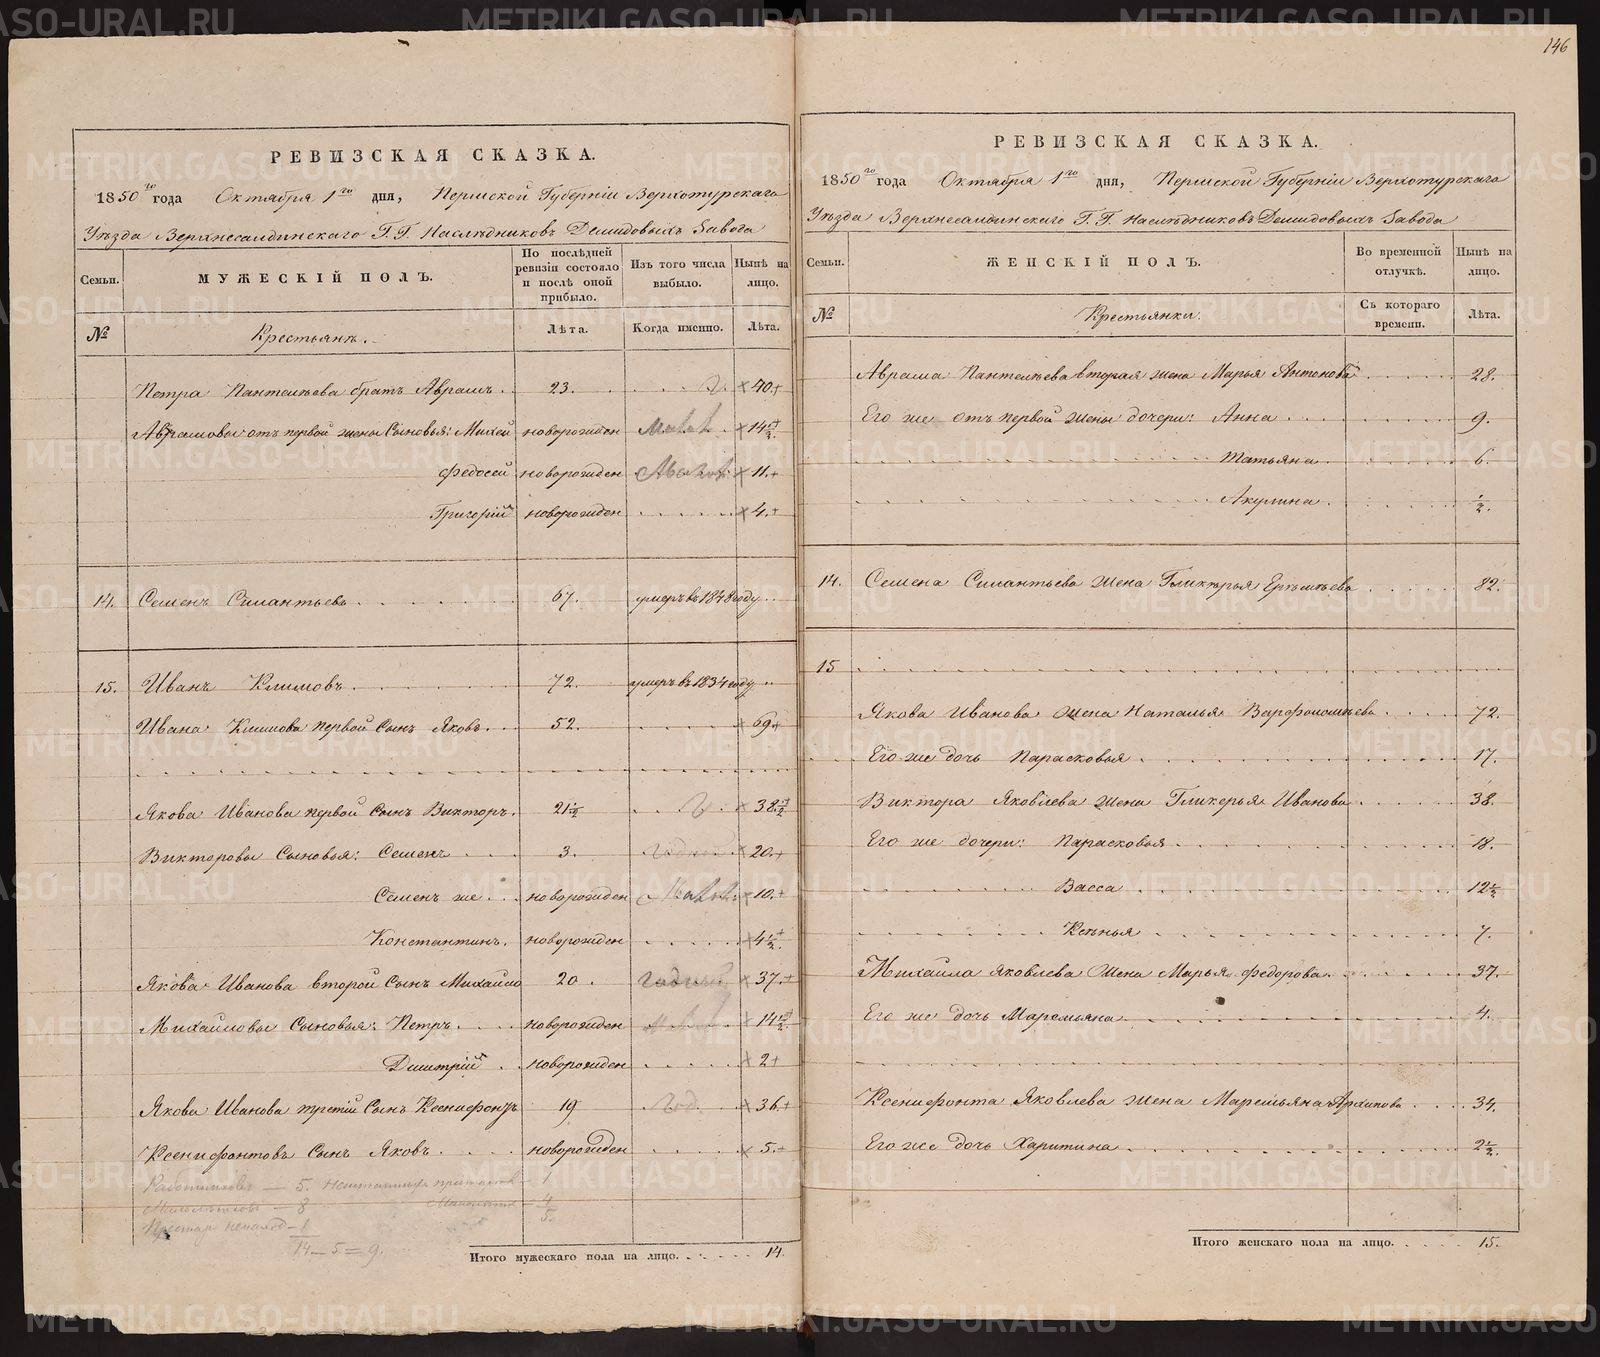 146
РЕВИЗСКАЯ СКАЗКА.
1850го года Октября 1го дня, Пермской Губерніи Верхотурскаго
Уѣзда Верхнесалдинскаго Г.Г. Наслѣдниковъ Демидовыхъ Завода
Семьи. МУЖЕСКІЙ ПОЛЪ. По послѣдней ревизіи состояло и послѣ оной прибыло. Изъ того числа выбыло. Нынѣ на лицо.
№ Крестьянъ. Лѣта. Когда именно. Лѣта.
Петра Пантелѣева братъ Аврамъ. 23. 40.
Аврамовы отъ первой жены Сыновья: Михей новорожден 14 1/2.
Федосей новорожден 11.
Григорій новорожден 4.
14. Семенъ Силантьевъ 67. умеръ въ 1848 году
15. Иванъ Климовъ 72. умеръ въ 1834 году
Ивана Климова первой Сынъ Яковъ 52. 69
Якова Иванова первой Сынъ Викторъ. 21 1/2 38 1/2
Викторовы Сыновья: Семенъ 3. 20.
Семенъ же новорожден 10.
Константинъ. новорожден 4 1/2.
Якова Иванова второй Сынъ Михайло 20. годный 37.
Михайловы Сыновья: Петръ новорожден 14 1/2.
Дмитрій новорожден 2
Якова Иванова третій Сынъ Ксенифонтъ 19 год. 36.
Ксенифонтовъ Сынъ Яковъ новорожден 5.
Работниковъ — 5. 1
Малолѣтковъ — 8 4
Престар — 1 5.
14 — 5 = 9.
Итого мужескаго пола на лицо. 14.
РЕВИЗСКАЯ СКАЗКА.
1850го года Октября 1го дня, Пермской Губерніи Верхотурскаго
Уѣзда Верхнесалдинскаго Г.Г. Наслѣдниковъ Демидовыхъ Завода
Семьи. ЖЕНСКІЙ ПОЛЪ. Во временной отлучкѣ. Нынѣ на лицо.
№ Крестьянки. Съ котораго времени. Лѣта.
Аврама Пантелѣева вторая жена Марья Антонова 28.
Его же отъ первой жены дочери: Анна 9.
Татьяна 6.
Акулина 1/2.
14. Семена Силантьева жена Гликерья Еремѣева 82.
15
Якова Иванова жена Наталья Варфоломѣева 72.
Его же дочь Парасковья 17.
Виктора Яковлева жена Гликерья Иванова 38.
Его же дочери: Парасковья 18.
Васса 12 1/2
Ксенья 7.
Михайла Яковлева жена Марья Федорова 37.
Его же дочь Маремьяна 4.
Ксенифонта Яковлева жена Маремьяна Архипова 34.
Его же дочь Харитина 2 1/2.
Итого женскаго пола на лицо. 15.
METRIKI.GASO-URAL.RU